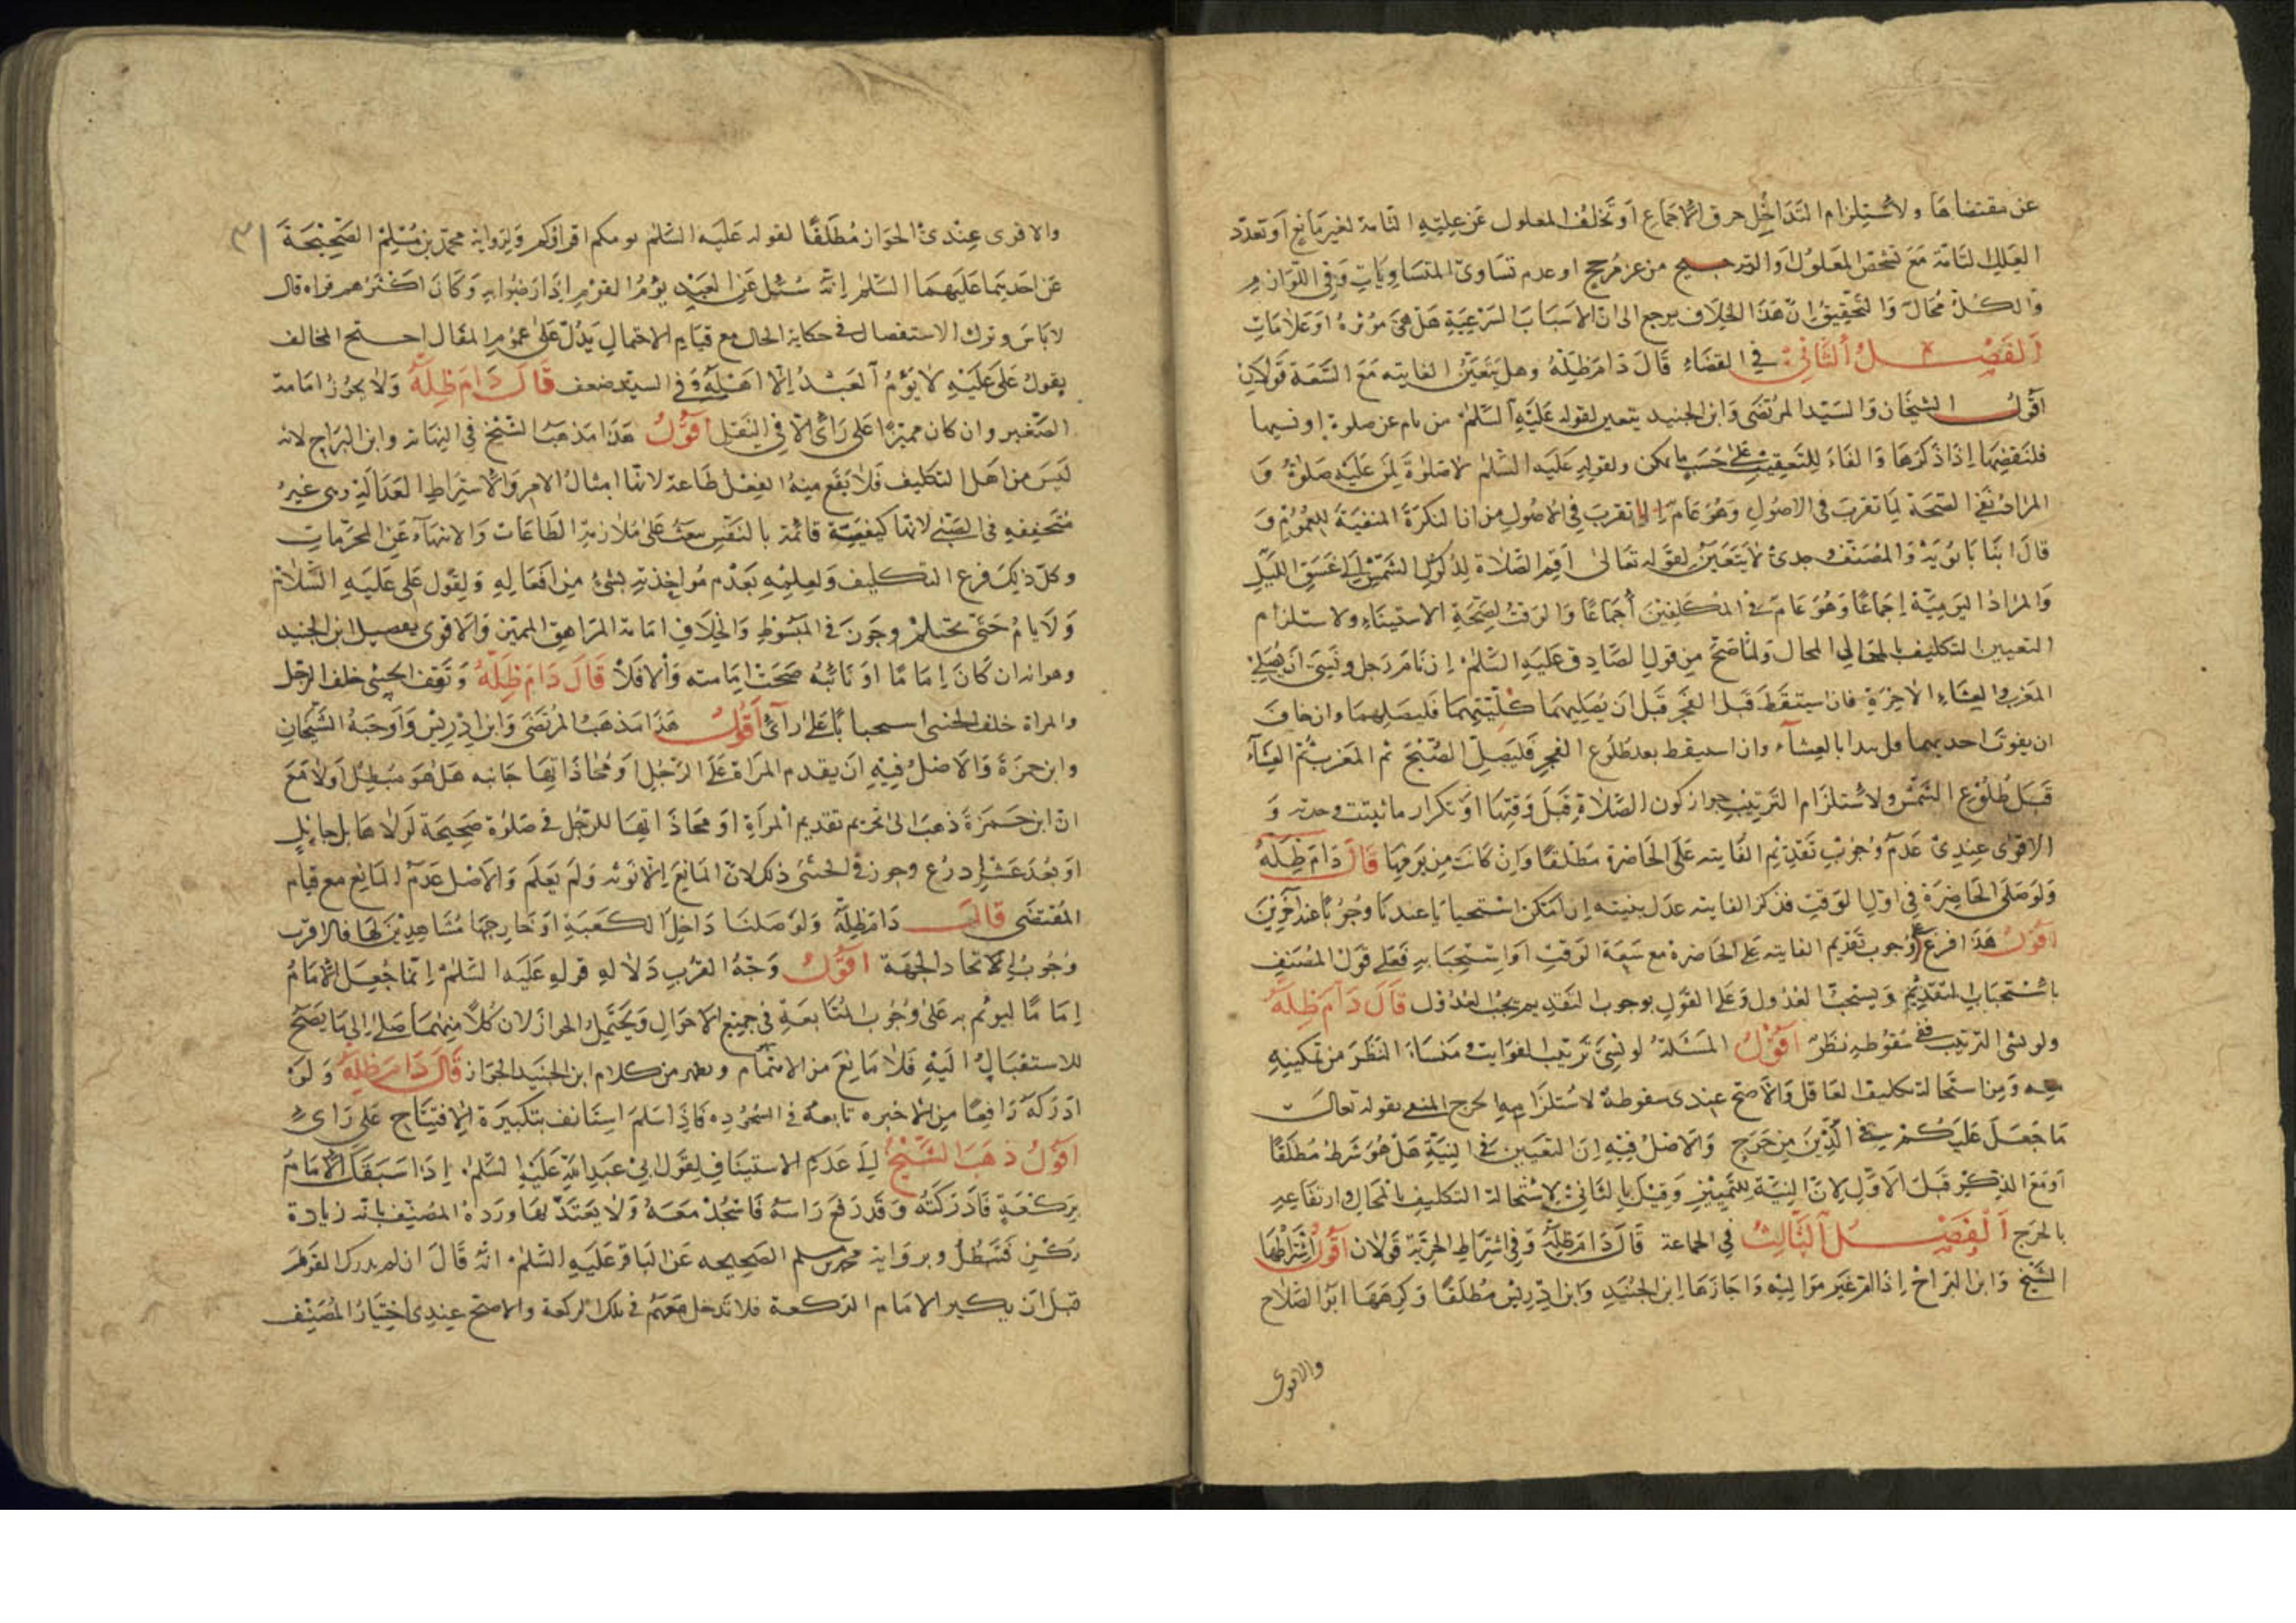 عن مقتضاها ولاستلزام التداخل خرق الاجماع او تخلف المعلول عن علته التامة لغير مانع او تعدد
العلل التامة مع تشخص المعلول والترجيح من غير مرجح او عدم تساوي المتساويات في اللوازم
والكل محال والتحقيق ان هذا الخلاف يرجع الى ان الاسباب الشرعية هل هي مؤثرة او علامات
الفصل الثاني في القضاء قال دام ظله وهل يتعين الفايته مع السعة قولان
اقول الشيخان والسيد المرتضى وابن الجنيد يتعين لقوله عليه السلم من نام عن صلوة او نسيها
فلنقضها اذا ذكرها والفاء للتعقيب على حسب ما يمكن ولقوله عليه السلم لا صلوة لمن عليه صلوة و
المراد نفي الصحة لما تقرب في الاصول وهو عام لما تقرب في الاصول من ان النكرة المنفية للعموم و
قال ابنا بابويه والمصنف وجدي لا يتعين لقوله تعالى اقم الصلاة لدلوك الشمس الى غسق الليل
والمراد اليومية اجماعا وهو عام في المكلفين اجماعا والوقت لصحة الاستيناء ولاستلزام
التعيين التكليف بالمحال ولما صح من قول الصادق عليه السلم ان نام رجل ونسي ان يصلي
المغرب والعشاء الاخرة فان استيقظ قبل الفجر قبل ان يصليهما كلتيهما فليصلهما وان خاف
ان يفوت احديهما فليبدا بالعشاء وان استيقظ بعد طلوع الفجر فليصل الصبح ثم المغرب ثم العشاء
قبل طلوع الشمس ولاستلزام الترتيب جواز كون الصلاة قبل وقتها او تكرار ما ثبتت وحدته و
الاقوى عندي عدم وجوب تقديم الفايته على الحاضرة مطلقا وان كانت من يومها قال دام ظله
ولو صلى الحاضرة في اول الوقت فذكر الفايته عدل بنيته ان امكن استحبابا عندنا ووجوبا عند آخرين
اقول هذا فرع وجوب تقديم الفايته على الحاضرة مع سعة الوقت او استحبابه فعلى قول المصنف
باستحباب التقديم يستحب العدول وعلى القول بوجوب التقديم يجب العدول قال دام ظله
ولو نسي الترتيب ففي سقوطه نظر اقول المسئلة لو نسي ترتيب الفوايت منشاء النظر من تمكينه
منه ومن استحالة تكليف الغافل والاصح عندي سقوطه لاستلزامه الحرج المنفي بقوله تعالى
ما جعل عليكم في الدين من حرج والاصل فيه ان التعيين في النية هل هو شرط مطلقا
او مع الذكر قيل الاول لان النية للتمييز وقيل بالثاني لاستحالة التكليف بالمحال وارتفاعه
بالحرج الفصل الثالث في الجماعة قال دام ظله وفي اشتراط الحرية قولان اقول اشترطها
الشيخ وابن البراج اذا ام غير مواليه واجازها ابن الجنيد وابن ادريس مطلقا وكرهها ابو الصلاح
والاقوى
والاقوى عندي الجواز مطلقا لقوله عليه السلم يومكم اقراوكم ولرواية محمد بن مسلم الصحيحة
٣١
عن احديهما عليهما السلم انه سئل عن العبد يؤم القوم اذا رضوا به وكان اكثرهم قراة قال
لا باس وترك الاستفصال في حكاية الحال مع قيام الاحتمال يدل على عموم المقال احتج المخالف
بقول علي عليه لا يؤم العبد الا اهله وفي السند ضعف قال دام ظله ولا يجوز امامة
الصغير وان كان مميزا على راي الا في النفل اقول هذا مذهب الشيخ في النهاية وابن البراج لانه
ليس من اهل التكليف فلا يقع منه الفعل طاعة لانها امتثال الامر ولاشتراط العدالة وهي غير
متحققه في الصبي لانها كيفية قائمة بالنفس تبعث على ملازمة الطاعات والانتهاء عن المحرمات
وكل ذلك فرع التكليف ولعلمه بعدم مواخذته بشئ من افعاله ولقول علي عليه السلام
ولا يام حتى تحتلم وجون في المبسوط والخلاف امامة المراهق المميز والاقوى تفصيل ابن الجنيد
وهو انه ان كان اماما او نائبه صحت امامته والا فلا قال دام ظله وتقف الخنثى خلف الرجل
والمراة خلف الخنثى استحبابا على راي اقول هذا مذهب المرتضى وابن ادريس واوجبه الشيخان
وابن حمزة والاصل فيه ان يقدم المراة على الرجل او محاذاتها جانبه هل هو مبطل او لا مع
ان ابن حمزة ذهب الى تحريم تقديم المراة او محاذاتها للرجل في صلوة صحيحة لولاها بل حايل
او بعد عشر اذرع وجوز في الخنثى ذلك لان المانع الانوثه ولم يعلم والاصل عدم المانع مع قيام
المقتضى قال دام ظله ولو صلنا داخل الكعبة او خارجها مشاهدين لها فالاقرب
وجوب الاتحاد الجهة اقول وجه القرب دلاله قوله عليه السلم انما جعل الامام
اماما ليوتم به على وجوب المتابعة في جميع الاحوال ويحتمل الجواز لان كلا منهما صلى الى ما يصح
للاستقبال اليه فلا مانع من الائتمام ويظهر من كلام ابن الجنيد الجواز قال دام ظله ولو
ادركه رافعا من الاخيره تابعه في السجود فاذا سلم استانف بتكبيرة الافتتاح على راي
اقول ذهب الشيخ الى عدم الاستيناف لقول ابي عبد الله عليه السلم اذا سبقك الامام
بركعة فادركته وقد رفع راسه فاسجد معه ولا يعتد بها ورده المصنف بانه زيادة
ركن فتبطل وبرواية محمد بن مسلم الصحيحه عن الباقر عليه السلم انه قال ان لم يدرك القوم
قبل ان يكبر الامام الركعة فلا تدخل معهم في تلك الركعة والاصح عندي اختيار المصنف